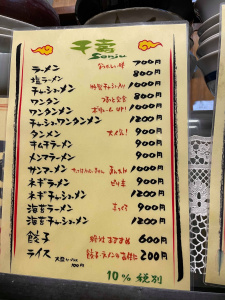 千寿
Senju
ラーメン 700円
塩ラーメン 800円
チャーシューメン 1000円
ワンタン 800円
ワンタンメン 1000円
チャーシューワンタンメン 1200円
タンメン 900円
キムチラーメン 900円
メンマラーメン 900円
サンマーメン 1000円
ネギラーメン ピリ辛 900円
ネギチャーシューメン 1200円
海苔ラーメン 900円
海苔チャーシューメン 1200円
餃子 600円
ライス 200円
100円
10% 税別